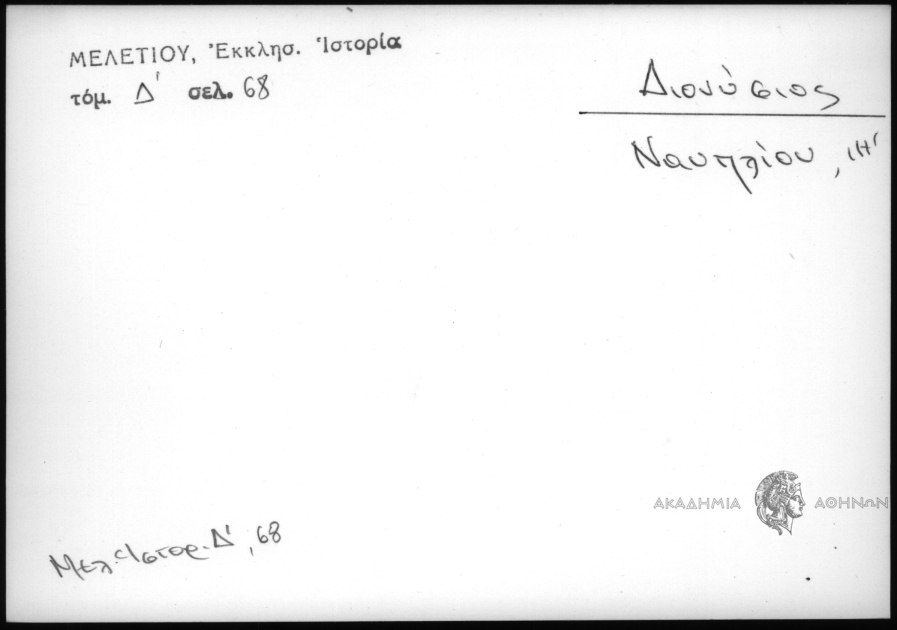 ΜΕΛΕΤΙΟΥ, Ἐκκλησ. Ἱστορία
τόμ. Δ' σελ. 68
Διονύσιος
Ναυπλίου, ιη'
ΑΚΑΔΗΜΙΑ ΑΘΗΝΩΝ
Μελ. Ἱστορ. Δ', 68